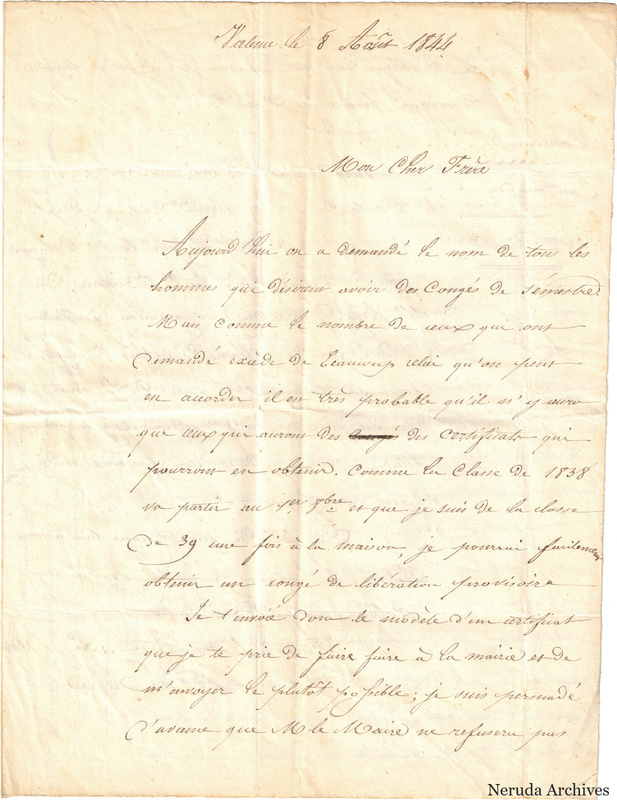 Valence le 8 Août 1844
Mon Cher Frère
Aujourd'hui on a demandé le nom de tous les
hommes qui désirent avoir des Congés de sémestre
Mais comme le nombre de ceux qui ont
Demandé exède de beaucoup celui qu'on peut
en accorder il est très probable qu'il n'y aura
que ceux qui auront des congé des certificats qui
pourront en obtenir. Comme la Classe de 1838
va partir au 1er 8bre et que je suis de la classe
De 39 une fois à la maison, je pourrai facilement
obtenir un congé de libération provisoire
Je t'envoie donc le modèle d'un certificat
que je te prie de faire faire à la mairie et de
m'envoyer le plutôt possible; je suis persuadé
d'avance que M le Maire ne refusera pas
Neruda Archives